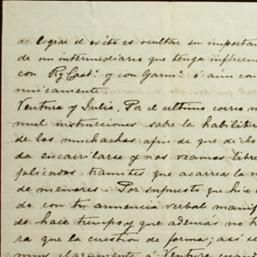 de lograr el exito es ocultar su importan
de un intermediario que tenga influen
con R. y Cast.º y con Garm.ª ó aun con
unicamente.
Ventura y Julia. Por el ultimo correo m
mil instrucciones sobre la habilita
de los muchachos afin de que dicho
da encarrilarse y nos veamos libre
plicados tramites que acarrea la
de menores. Por supuesto que hice
do con tu anuencia verbal manif
de hace tiempo y que además no t
ra que la cuestion de forma; así se
muy claramente á Ventura cuand